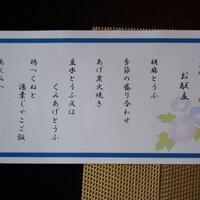 お献立
胡麻どうふ
季節の盛り合わせ
あげ炭火焼き
豆水どうふ又は
くみあげどうふ
鶏つくねと
湯葉じゃこご飯